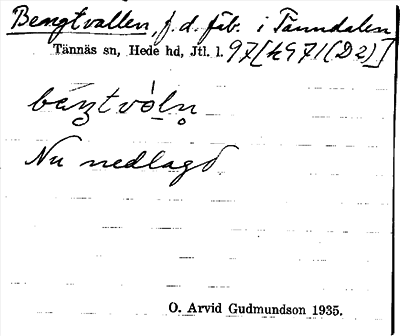 Bengtvallen, f.d. fäb. i Tänndalen
Tännäs sn, Hede hd, Jtl. l. 97[h971(D2)]
Nu nedlagd
O. Arvid Gudmundson 1935.